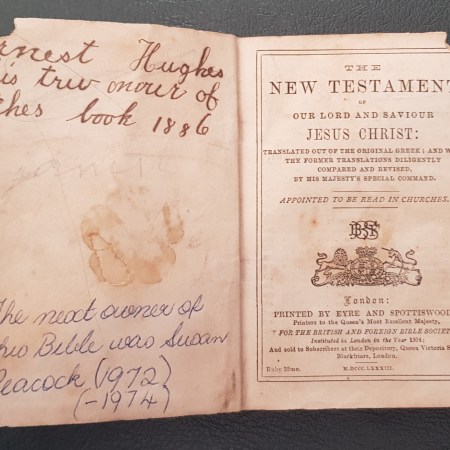 rnest Hughes
is triw onour of
thes book 1886
The next owner of
this Bible was Susan
Peacock (1972)
(-1974)
THE
NEW TESTAMENT
OF
OUR LORD AND SAVIOUR
JESUS CHRIST:
TRANSLATED OUT OF THE ORIGINAL GREEK; AND W
THE FORMER TRANSLATIONS DILIGENTLY
COMPARED AND REVISED,
BY HIS MAJESTY'S SPECIAL COMMAND.
APPOINTED TO BE READ IN CHURCHES.
BFBS
London:
PRINTED BY EYRE AND SPOTTISWOOD
Printers to the Queen's Most Excellent Majesty,
FOR THE BRITISH AND FOREIGN BIBLE SOCIET
Instituted in London in the Year 1804;
And sold to Subscribers at their Depository, Queen Victoria S
Blackfriars, London.
Ruby 32mo.
M.DCCC.LXXXIII.